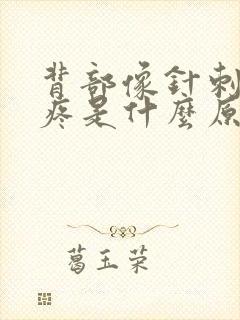 背部像針刺
疼是什麼原
葛玉荣